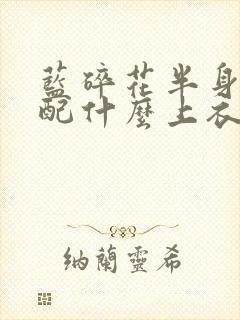 藍碎花半身
配什麼上衣
納蘭靈希